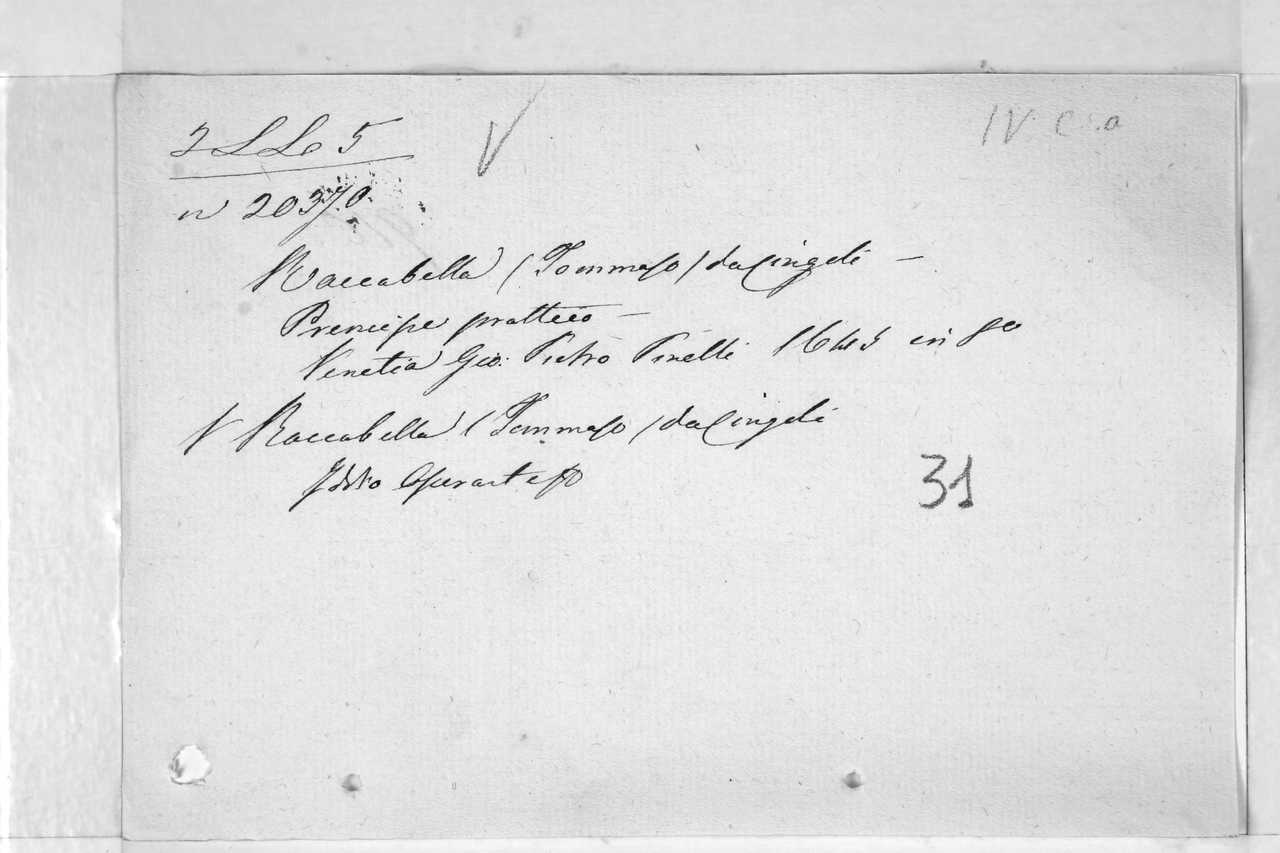 2 LL 5 V IV. C. a
n 20370.
Roccabella (Tommaso) da Cingoli –
Prencipe prattico –
Venetia Gio: Pietro Pinelli 1645 in 8º
V Roccabella (Tommaso) da Cingoli
Iddio Operante
31